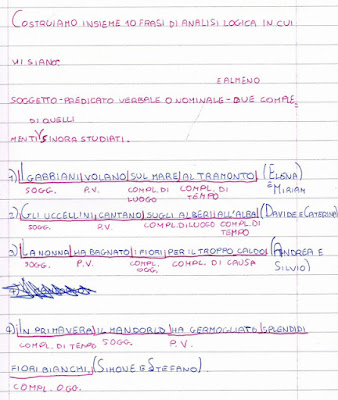 COSTRUIAMO INSIEME 10 FRASI DI ANALISI LOGICA IN CUI
VI SIANO:
E ALMENO
SOGGETTO - PREDICATO VERBALE O NOMINALE - DUE COMPLE
DI QUELLI
MENTI SINORA STUDIATI.
1) I GABBIANI VOLANO SUL MARE AL TRAMONTO (ELENA
E MIRIAM
SOGG. P.V. COMPL. DI LUOGO COMPL. DI TEMPO
2) GLI UCCELLINI CANTANO SUGLI ALBERI ALL'ALBA (DAVIDE E CATERINA)
SOGG. P.V. COMPL. DI LUOGO COMPL. DI TEMPO
3) LA NONNA HA BAGNATO I FIORI PER IL TROPPO CALDO (ANDREA E
SILVIO)
SOGG. P.V. COMPL. OGG. COMPL. DI CAUSA
4) IN PRIMAVERA IL MANDORLO HA GERMOGLIATO SPLENDIDI
COMPL. DI TEMPO SOGG. P.V.
FIORI BIANCHI. (SIMONE E STEFANO).
COMPL. OGG.